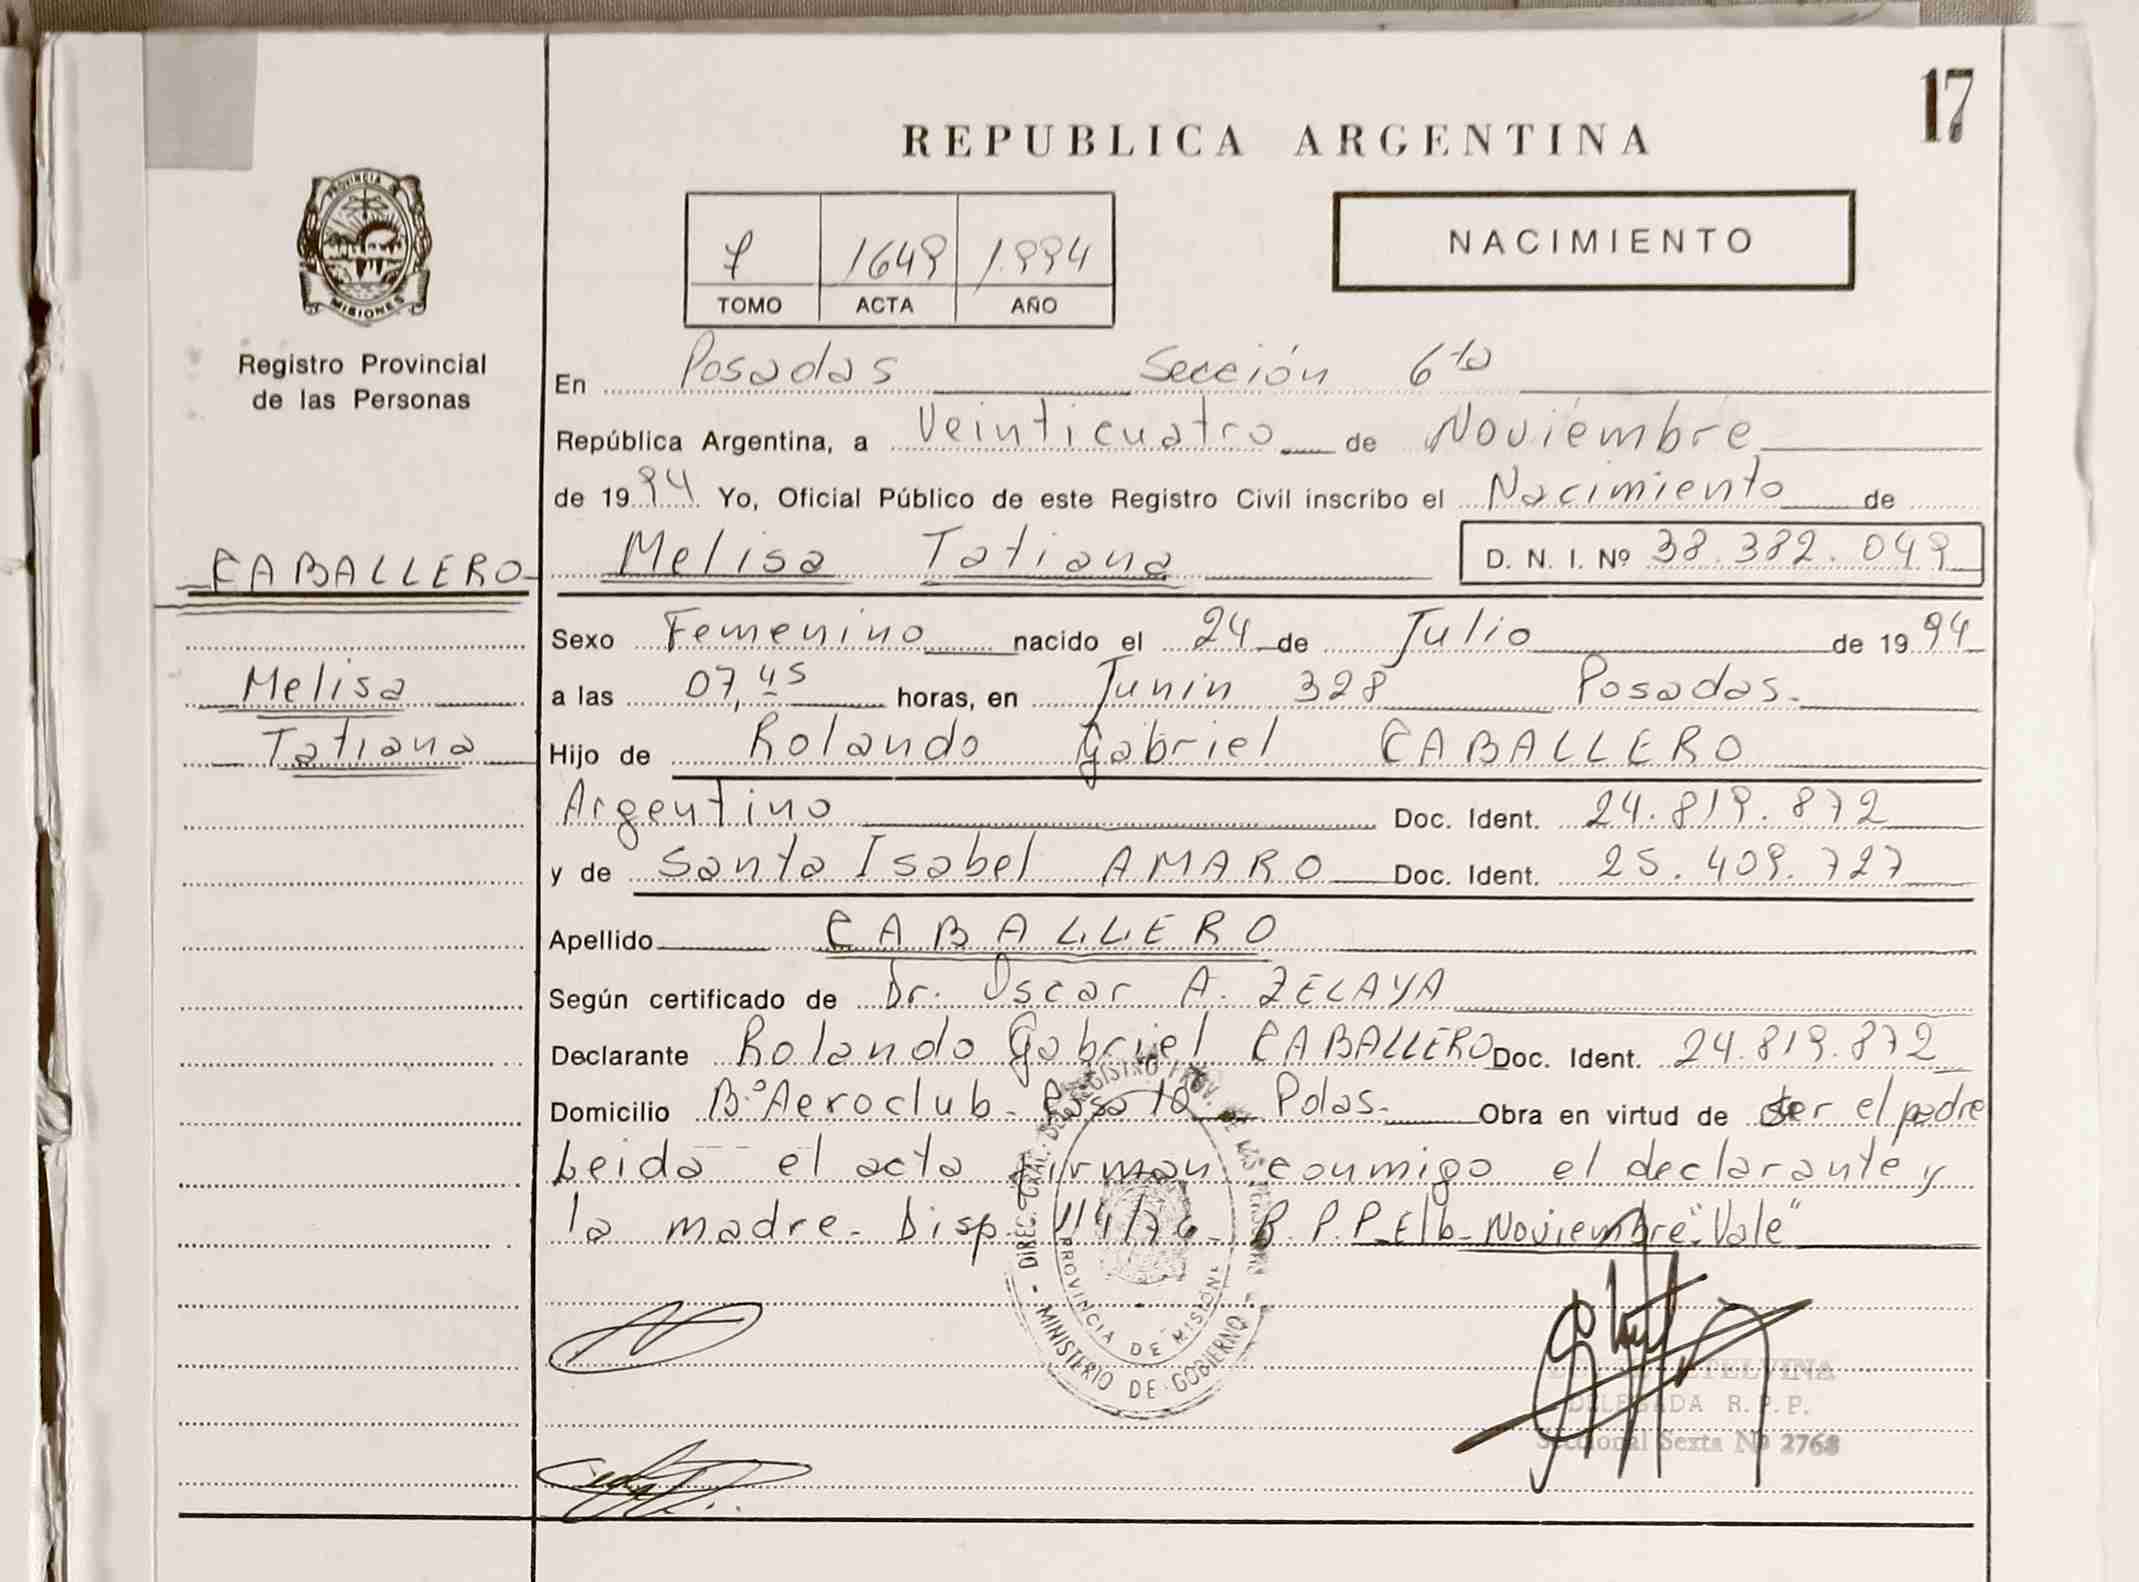 17
REPUBLICA ARGENTINA
PROVINCIA
MISIONES
Registro Provincial
de las Personas
1649 1.994
TOMO ACTA AÑO
NACIMIENTO
En Posadas Sección 6ta
República Argentina, a Veinticuatro de Noviembre
de 1994 Yo, Oficial Público de este Registro Civil inscribo el Nacimiento de
CABALLERO Melisa Tatiana D. N. I. Nº 38.382.049
Sexo Femenino nacido el 24 de Julio de 1994
Melisa
a las 07,45 horas, en Junin 328 Posadas.
Tatiana
Hijo de Rolando Gabriel CABALLERO
Argentino Doc. Ident. 24.819.872
y de Santa Isabel AMARO Doc. Ident. 25.409.727
Apellido CABALLERO
Según certificado de Dr. Oscar A. ZELAYA
Declarante Rolando Gabriel CABALLERO Doc. Ident. 24.819.872
Domicilio B.º Aeroclub - Pdas. Obra en virtud de ser el padre
Leida el acta firman conmigo el declarante y
la madre. Disp. R.P.P. Elb. Noviembre "Vale"
PROVINCIA DE MISIONES
MINISTERIO DE GOBIERNO
ETELVINA
DELEGADA R. P. P.
Seccional Sexta Nº 2768